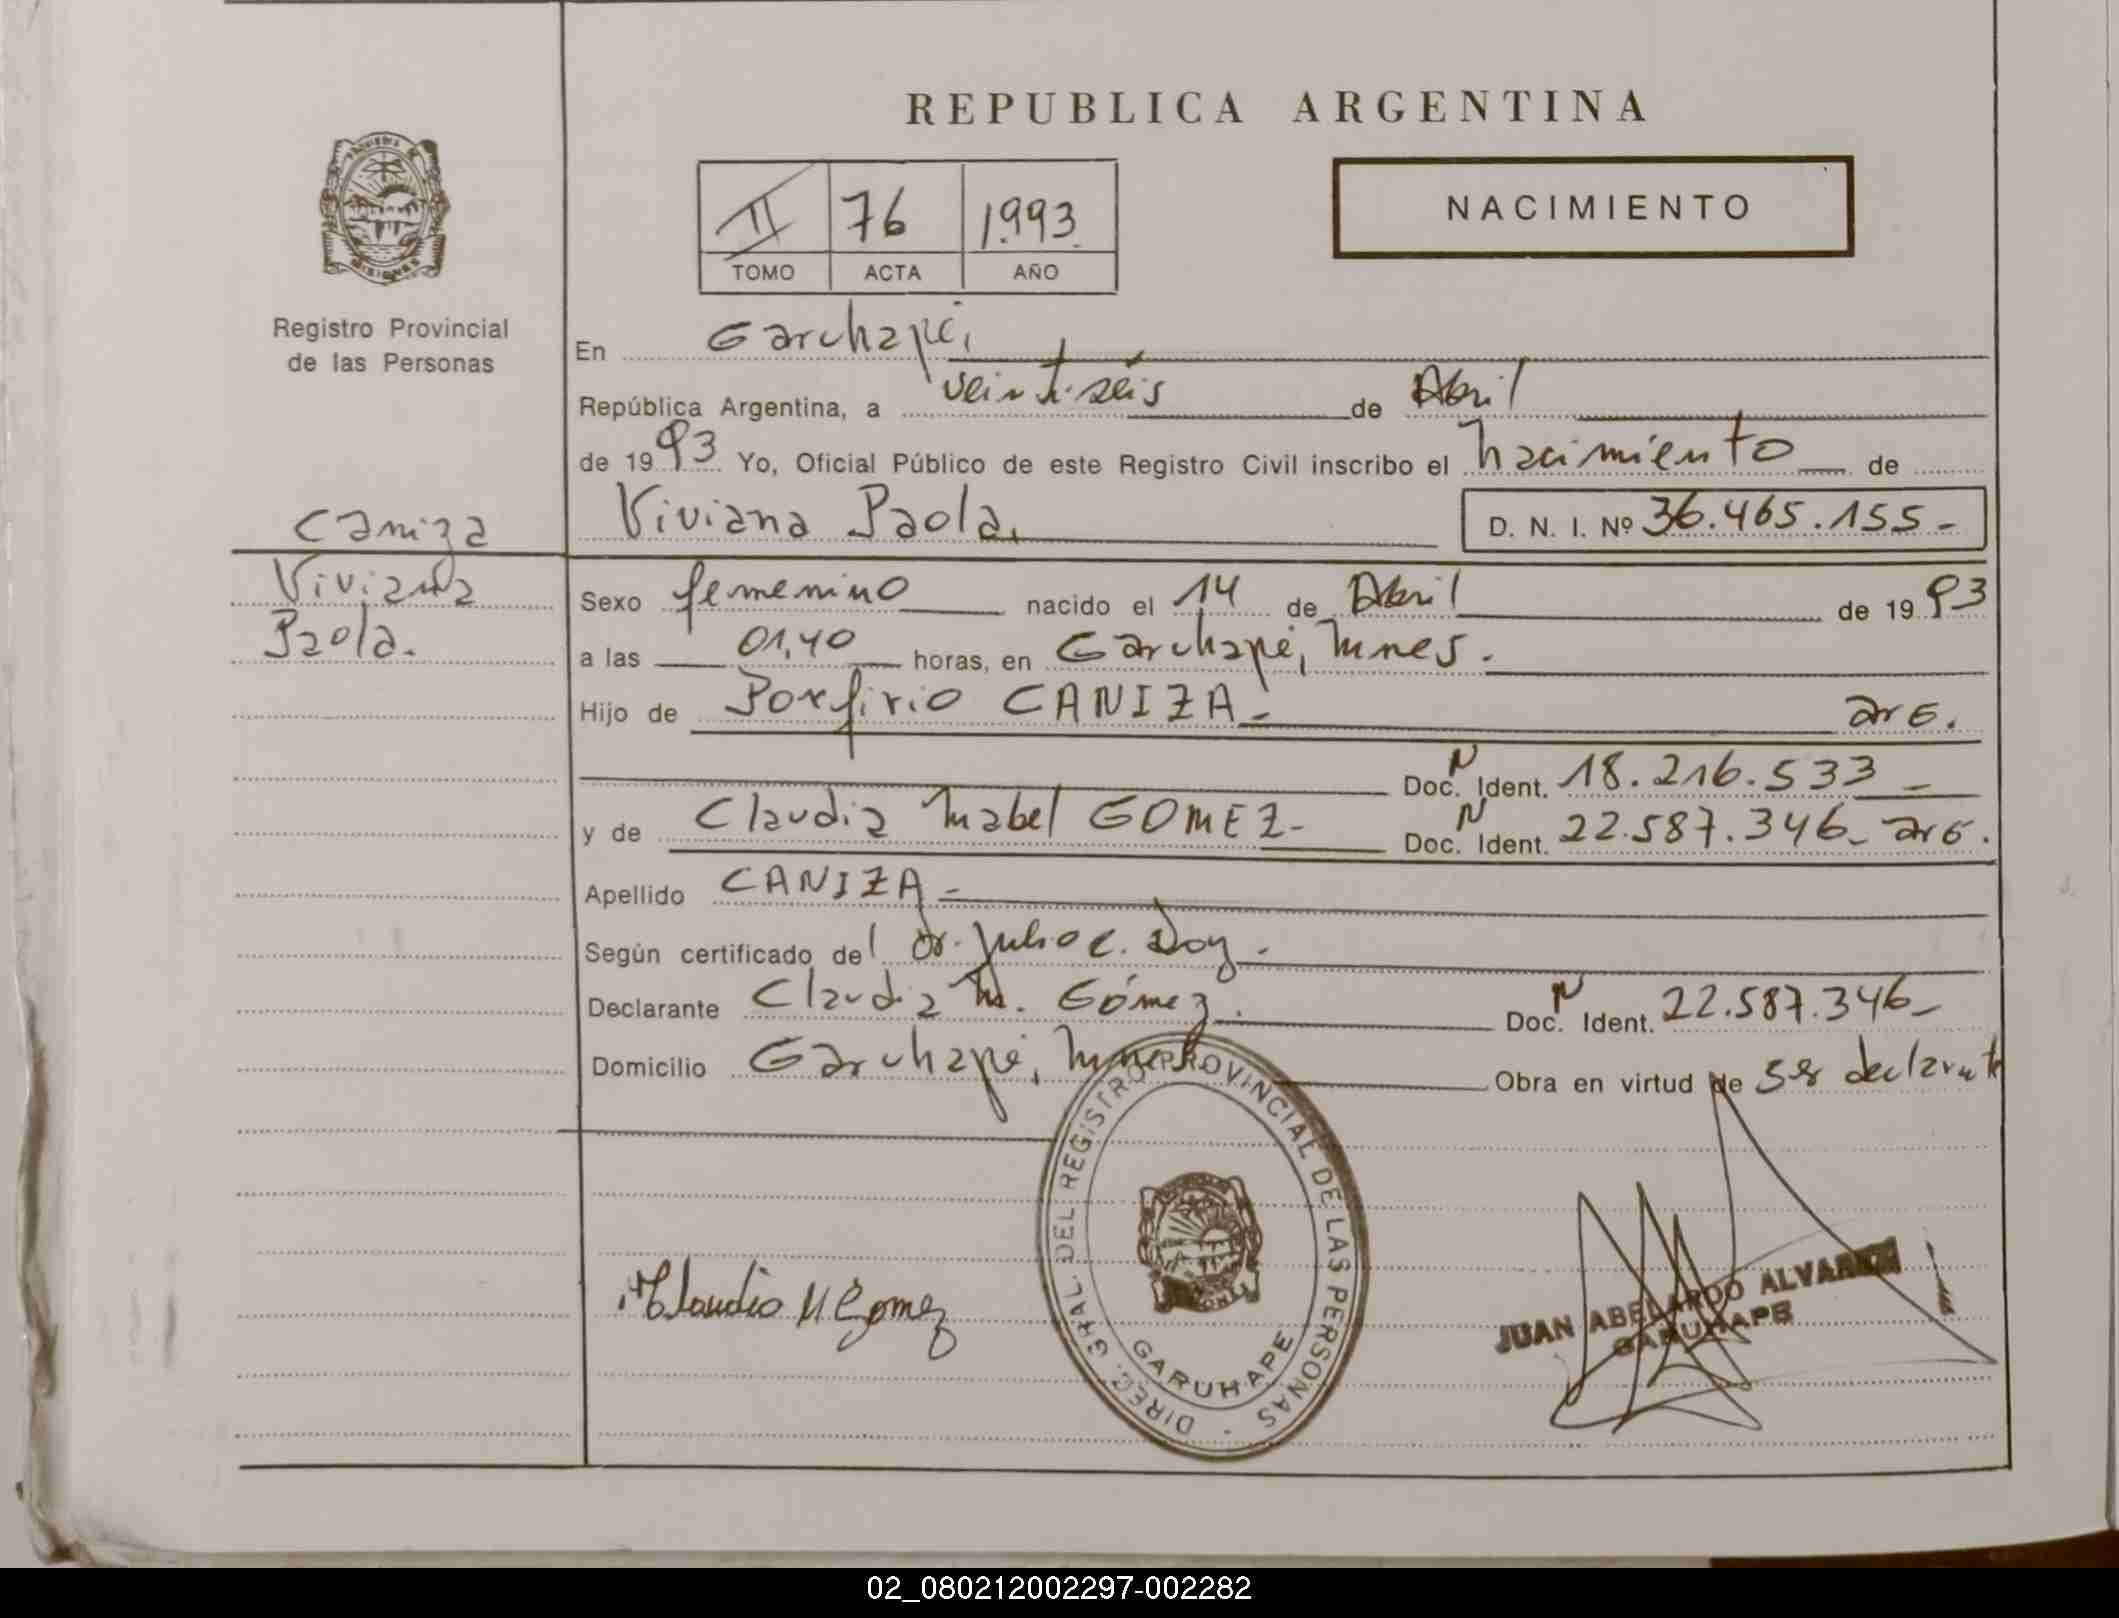 REPUBLICA ARGENTINA
NACIMIENTO
II 76 1993
TOMO ACTA AÑO
Registro Provincial
de las Personas
En Garuhapé,
República Argentina, a veintiseis de Abril
de 1993 Yo, Oficial Público de este Registro Civil inscribo el nacimiento de
Viviana Paola. D. N. I. Nº 36.465.155-
Caniza
Viviana
Paola.
Sexo femenino nacido el 14 de Abril de 1993
a las 01,40 horas, en Garuhapé, Mnes.
Hijo de Porfirio CANIZA- arg.
Doc. N Ident. 18.216.533-
y de Claudia Mabel GOMEZ- Doc. N Ident. 22.587.346- arg.
Apellido CANIZA-
Según certificado del Dr. Julio C.
Declarante Claudia M. Gómez. Doc. N Ident. 22.587.346-
Domicilio Garuhapé, Mnes. Obra en virtud de ser declarante
DIREC. GRAL. DEL REGISTRO PROVINCIAL DE LAS PERSONAS
GARUHAPE
Claudia M Gomez
JUAN ABELARDO ALVAREZ
GARUHAPE
02_080212002297-002282